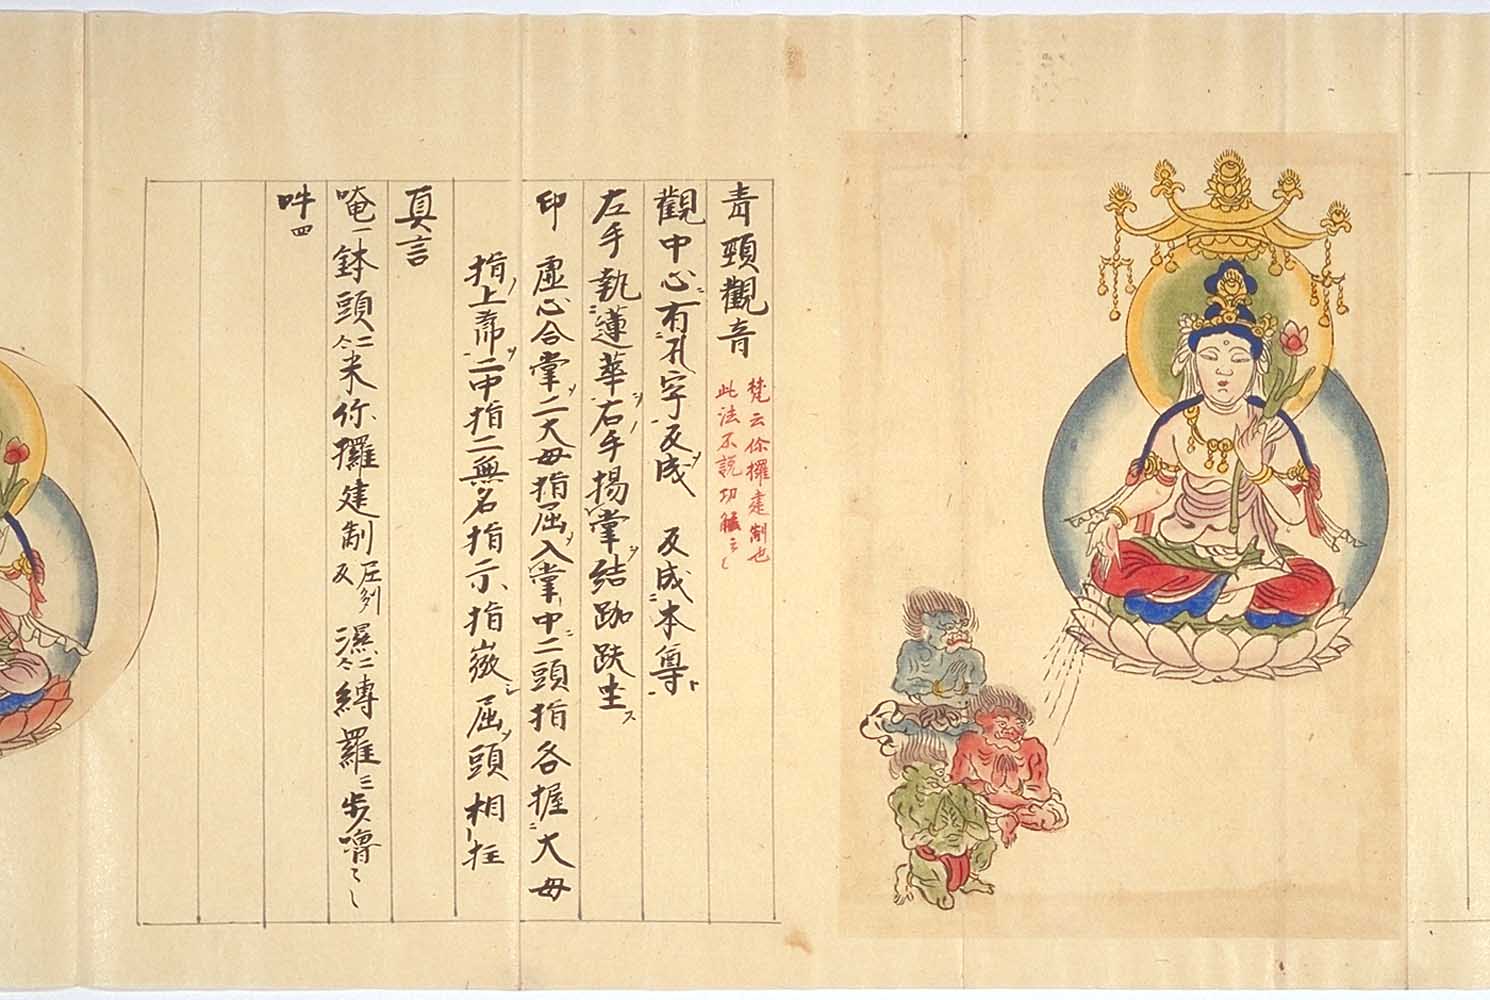 青頸觀音
梵云你攞建制也
此法不說功能云々
觀中心ニ有孔字反成 反成本尊
左手執蓮華右手揚掌結跏趺坐ス
印 虛心合掌二大母指屈入掌中二頭指各握大母
指上節二中指二無名指示指嶶屈頭相拄
真言
唵一鉢頭二合米你攞建制圧列反濕二合縛羅三步嚕々々
吽四